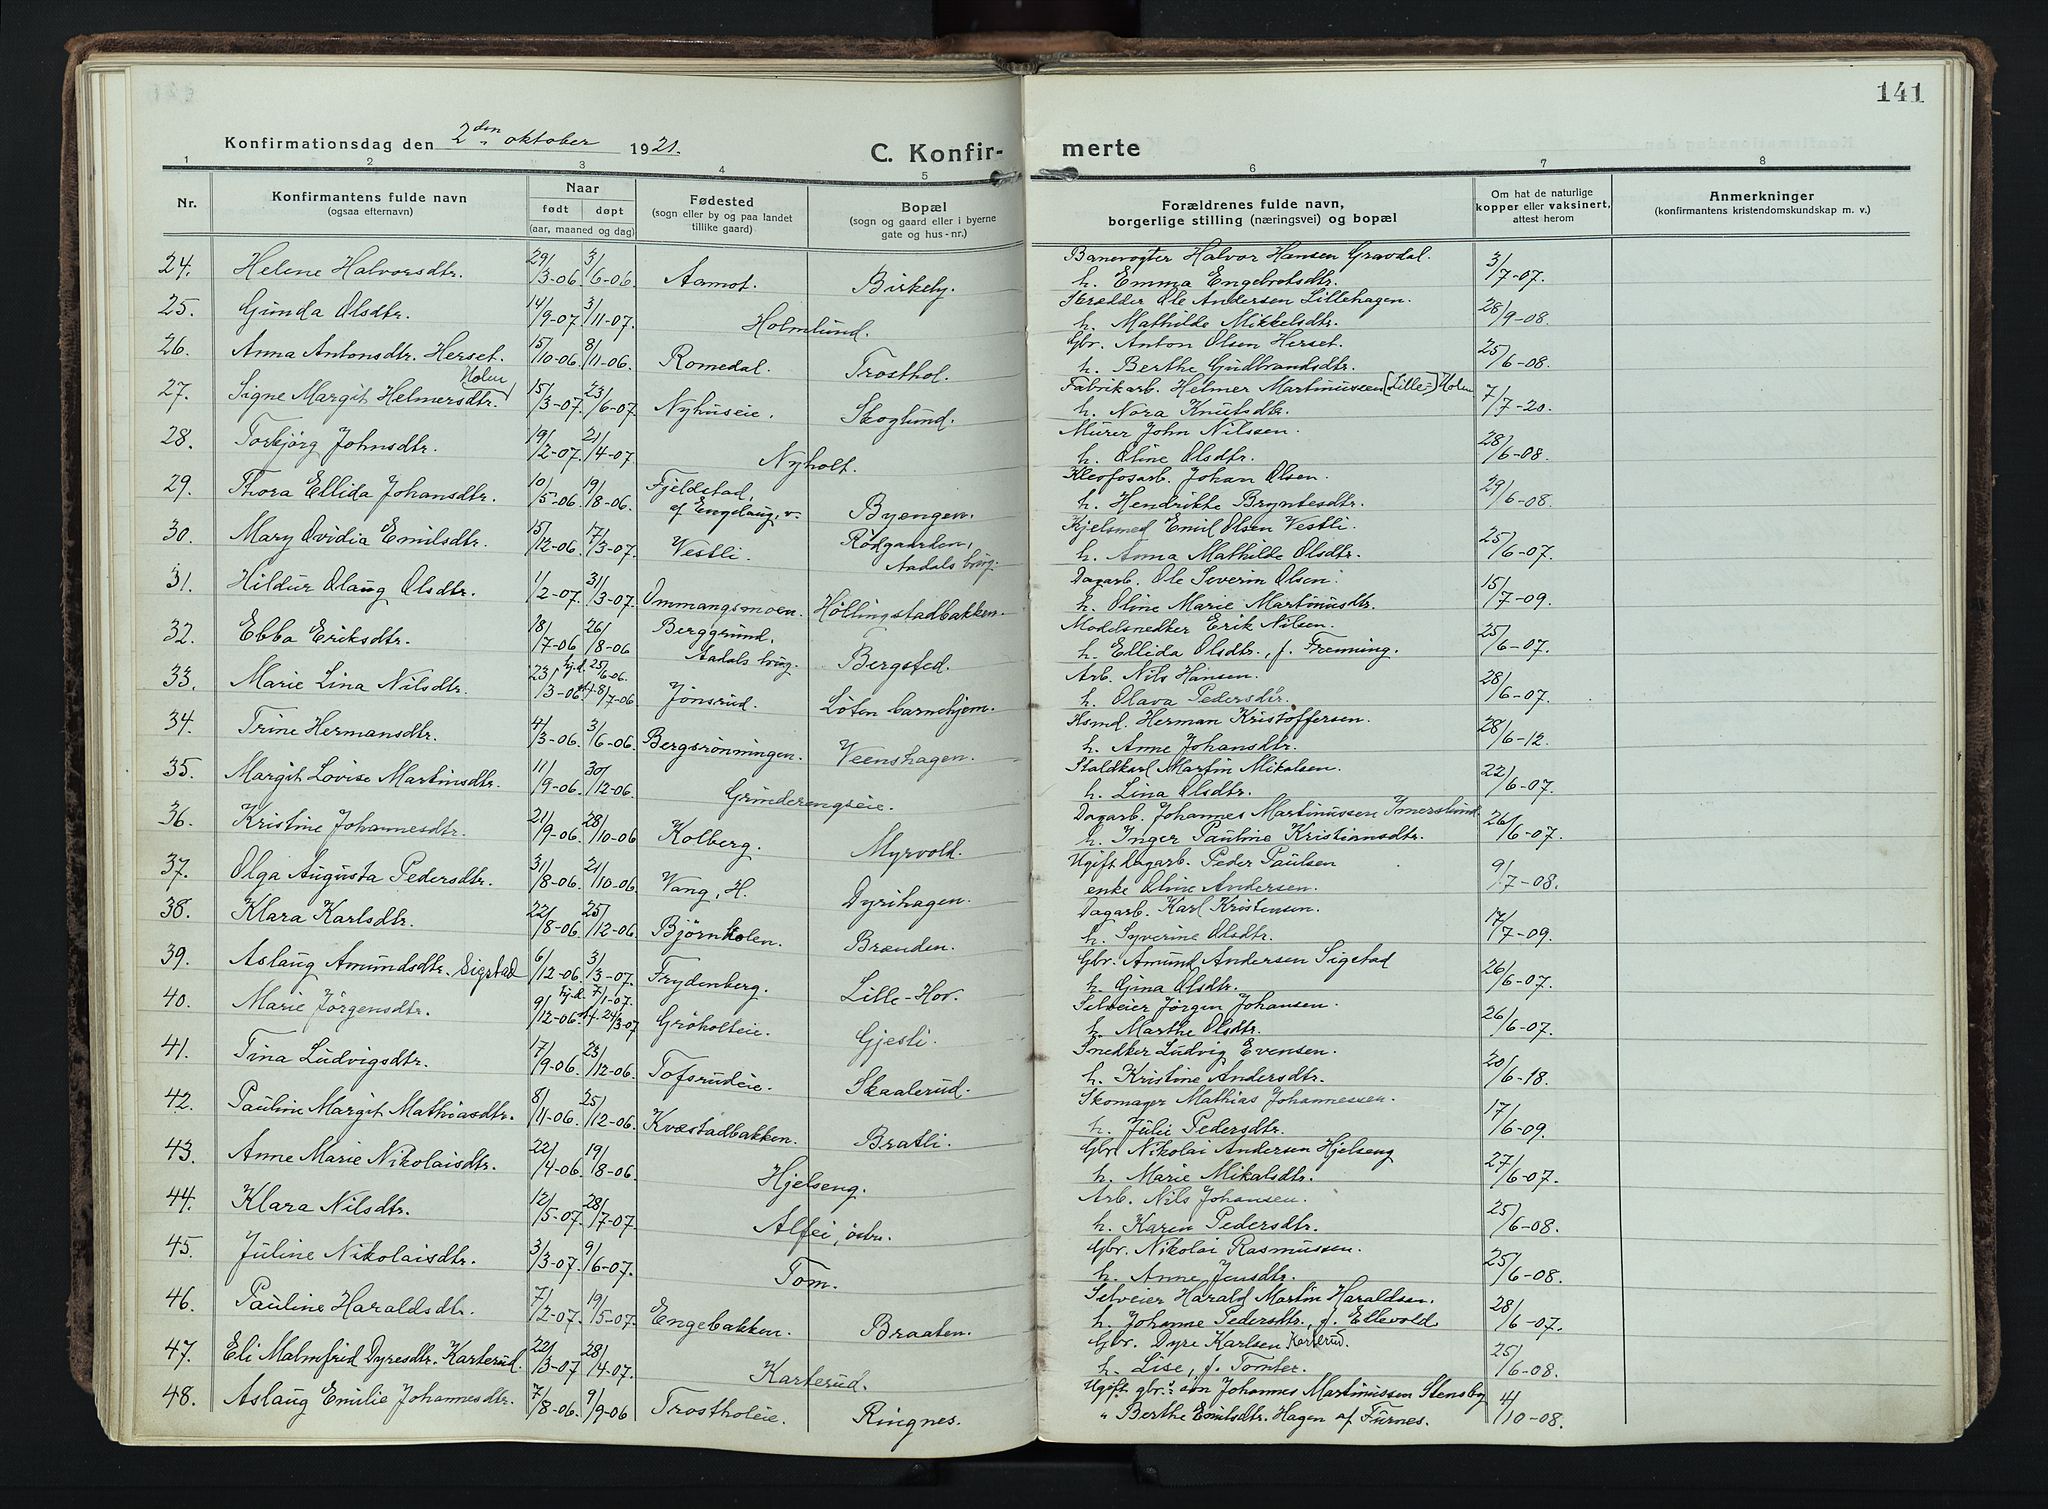 141
Konfirmationsdag den 2den oktober 1921.
C. Konfir-
merte
1 2 3 4 5 6 7 8
Nr.
Konfirmantens fulde navn
(ogsaa efternavn)
Naar
født døpt
(aar, maaned og dag)
Fødested
(sogn eller by og paa landet
tillike gaard)
Bopæl
(sogn og gaard eller i byerne
gate og hus-nr.)
Forældrenes fulde navn,
borgerlige stilling (næringsvei) og bopæl
Om hat de naturlige
kopper eller vaksinert,
attest herom
Anmerkninger
(konfirmantens kristendomskundskap m. v.)
24. Helene Halvorsdtr. 29/3-06 3/6-06. Aamot. Birkeby. Banevogter Halvor Hansen Gravdal. 3/7-07.
h. Emma Engebretsdtr.
25. Gunda Olsdtr. 14/9-07 3/11-07. Holmlund. Skrædder Ole Andersen Lillehagen. 28/9-08.
h. Mathilde Mikkelsdtr.
26. Anna Antonsdtr. Herset. 15/10-06. 8/11-06. Romedal. Trosthol. Gbr. Anton Olsen Herset. 25/6-08.
h. Berthe Gudbrandsdtr.
27. Signe Margit Helmersdtr. Holen 15/3-07. 23/6-07. Nyhuseie. Skoglund. Fabrikarb. Helmer Martinussen (Lille-) Holen 7/7-20.
h. Nora Knutsdtr.
28. Torbjørg Johnsdtr. 19/2-07. 21/4-07. Nyholt. Murer John Nilssen. 28/6-08.
h. Oline Olsdtr.
29. Thora Ellida Johansdtr. 10/5-06. 19/8-06. Fjeldstad, af Engelaug, v. Byengen. Kleofosarb. Johan Olsen. 29/6-08.
h. Hendrikke Bryntesdtr.
30. Mary Ovidia Emilsdtr. 15/12-06. 7/3-07. Vestli. Rødgaarden, Aadals brug. Kjelsmed Emil Olsen Vestli. 25/6-07.
h. Anna Mathilde Olsdtr.
31. Hildur Olaug Olsdtr. 1/2-07. 31/3-07. Ommangsmoen. Høllingstadbakken. Dagarb. Ole Severin Olsen. 15/7-09.
h. Oline Marie Martinusdtr.
32. Ebba Eriksdtr. 18/7-06 26/8-06 Berggrund, Aadals brug. Bergsted. Modelsnedker Erik Nilsen. 25/6-07.
h. Ellida Olsdtr., f. Fremming.
33. Marie Lina Nilsdtr. 23/3-06. hj.d. 25/6-06. 8/7-06 Jønsrud. Løten barnehjem. Arb. Nils Hansen. 28/6-07.
h. Olava Pedersdtr.
34. Trine Hermansdtr. 4/3-06. 3/6-06. Bergsrønningen. Veenshagen. Hsmd. Herman Kristoffersen. 28/6-12.
h. Anne Johansdtr.
35. Margit Lovise Martinsdtr. 11/9-06. 30/12-06. Grinderengseie. Staldkarl Martin Mikalsen. 22/6-07.
h. Lina Olsdtr.
36. Kristine Johannesdtr. 21/9-06. 28/10-06 Kolberg. Myrvold. Dagarb. Johannes Martinussen Imerslund 26/6-07.
h. Inger Pauline Kristiansdtr.
37. Olga Augusta Pedersdtr. 31/8-06. 21/10-06 Vang, H. Dyrihagen. Ugift dagarb. Peder Paulsen 9/7-08.
enke Oline Andersen.
38. Klara Karlsdtr. 22/8-06. 25/12-06. Bjørnholen. Brænden. Dagarb. Karl Kristensen. 17/7-09.
h. Syverine Olsdtr.
39. Aslaug Amundsdtr. Sigstad 6/12-06. 3/3-07. Frydenberg. Lille-Hov. Gbr. Amund Andersen Sigstad 26/6-07.
h. Gina Olsdtr.
40. Marie Jørgensdtr. 9/12-06. hj.d. 7/1-07. 24/3-07 Grøholteie. Gjesli. Selveier Jørgen Johansen. 26/6-07.
h. Marthe Olsdtr.
41. Tina Ludvigsdtr. 17/9-06. 23/12-06. Tofsrudeie. Skaalerud. Snedker Ludvig Evensen. 20/6-18.
h. Kristine Andersdtr.
42. Pauline Margit Mathiasdtr. 8/11-06. 25/12-06. Kvæstadbakken. Bratli. Skomager Mathias Johannessen. 17/6-09.
h. Julie Pedersdtr.
43. Anne Marie Nikolaisdtr. 22/4-06. 19/8-06. Hjelseng. Gbr. Nikolai Andersen Hjelseng 27/6-07.
h. Marie Mikalsdtr.
44. Klara Nilsdtr. 12/5-07. 28/7-07. Alfei, østre. Arb. Nils Johansen. 25/6-08.
h. Karen Pedersdtr.
45. Juline Nikolaisdtr. 3/3-07. 9/6-07. Tom. Gbr. Nikolai Rasmussen. 25/6-08.
h. Anne Jensdtr.
46. Pauline Haraldsdtr. 7/2-07. 19/5-07. Engebakken. Braaten. Selveier Harald Martin Haraldsen. 28/6-07.
h. Johanne Pedersdtr., f. Ellevold
47. Eli Malmfrid Dyresdtr. Karterud. 22/3-07 28/4-07. Karterud. Gbr. Dyre Karlsen Karterud. 25/6-08.
h. Lise, f. Tomter.
48. Aslaug Emilie Johannesdtr. 7/8-06. 9/9-06 Trostholeie. Ringnes. Ugift gbr.søn Johannes Martinussen Stensby 4/10-08.
" Berthe Emilsdtr. Hagen af Furnes.